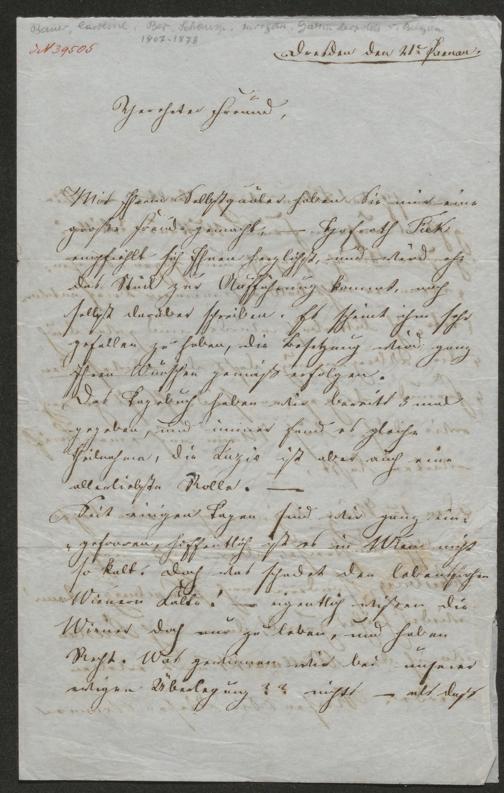 Bauer, Caroline,
1807-1878
N 39505
Dresden den 21t Januar.
Verehrter Freund,
Mit Ihrem Selbstquäler haben Sie mir eine
große Freude gemacht, — Hofrath Tiek
empfiehlt sich Ihnen herzlichst, und wird ehe
das Stück zur Aufführung kommt, noch
selbst darüber schreiben. Es scheint ihm sehr
gefallen zu haben, die Besetzung wird ganz
Ihren Wünschen gemäß erfolgen.
Das Tagebuch haben wir bereits 3 mal
gegeben, und immer fand es gleiche
Theilnahme, die Luzie ist aber auch eine
allerliebste Rolle. —
Seit einigen Tagen sind wir ganz ein-
gefroren, hoffentlich ist es in Wien nicht
so kalt. Doch was schadet den lebenslustigen
Wienern Kälte! — eigentlich wissen die
Wiener doch nur zu leben, und haben
Recht. Was gewinnen wir bei unserer
ewigen Überlegung ?? nichts — als daß